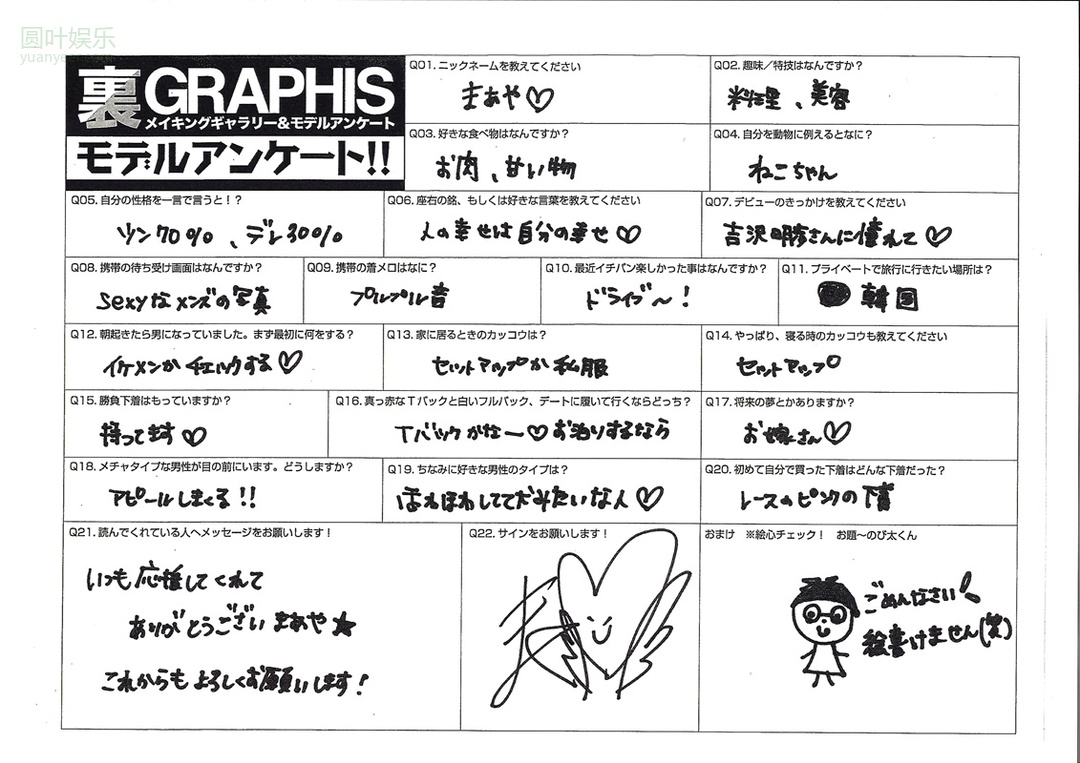 圆叶娱乐
裏GRAPHIS
メイキングギャラリー&モデルアンケート
モデルアンケート!!
Q01.ニックネームを教えてください
まあや♡
Q02.趣味/特技はなんですか?
料理、美容
Q03.好きな食べ物はなんですか?
お肉、甘い物
Q04.自分を動物に例えるとなに?
ねこちゃん
Q05.自分の性格を一言で言うと!?
ツン70%、デレ30%
Q06.座右の銘、もしくは好きな言葉を教えてください
人の幸せは自分の幸せ♡
Q07.デビューのきっかけを教えてください
吉沢明歩さんに憧れて♡
Q08.携帯の待ち受け画面はなんですか?
sexyなメンズの写真
Q09.携帯の着メロはなに?
プルプル音
Q10.最近イチバン楽しかった事はなんですか?
ドライブ〜!
Q11.プライベートで旅行に行きたい場所は?
韓国
Q12.朝起きたら男になっていました。まず最初に何をする?
イケメンかチェックする♡
Q13.家に居るときのカッコウは?
セットアップか私服
Q14.やっぱり、寝る時のカッコウも教えてください
セットアップ
Q15.勝負下着はもっていますか?
持ってます♡
Q16.真っ赤なTバックと白いフルバック、デートに履いて行くならどっち?
Tバックかなー♡お泊りするなら
Q17.将来の夢とかありますか?
お嫁さん♡
Q18.メチャタイプな男性が目の前にいます。どうしますか?
アピールしまくる!!
Q19.ちなみに好きな男性のタイプは?
ほわほわしててだみたいな人♡
Q20.初めて自分で買った下着はどんな下着だった?
レースのピンクの下着
Q21.読んでくれている人へメッセージをお願いします!
いつも応援してくれて
ありがとうございまあや★
これからもよろしくお願いします!
Q22.サインをお願いします!
おまけ ※絵心チェック! お題〜のび太くん
ごめんなさい!
絵書けません(笑)